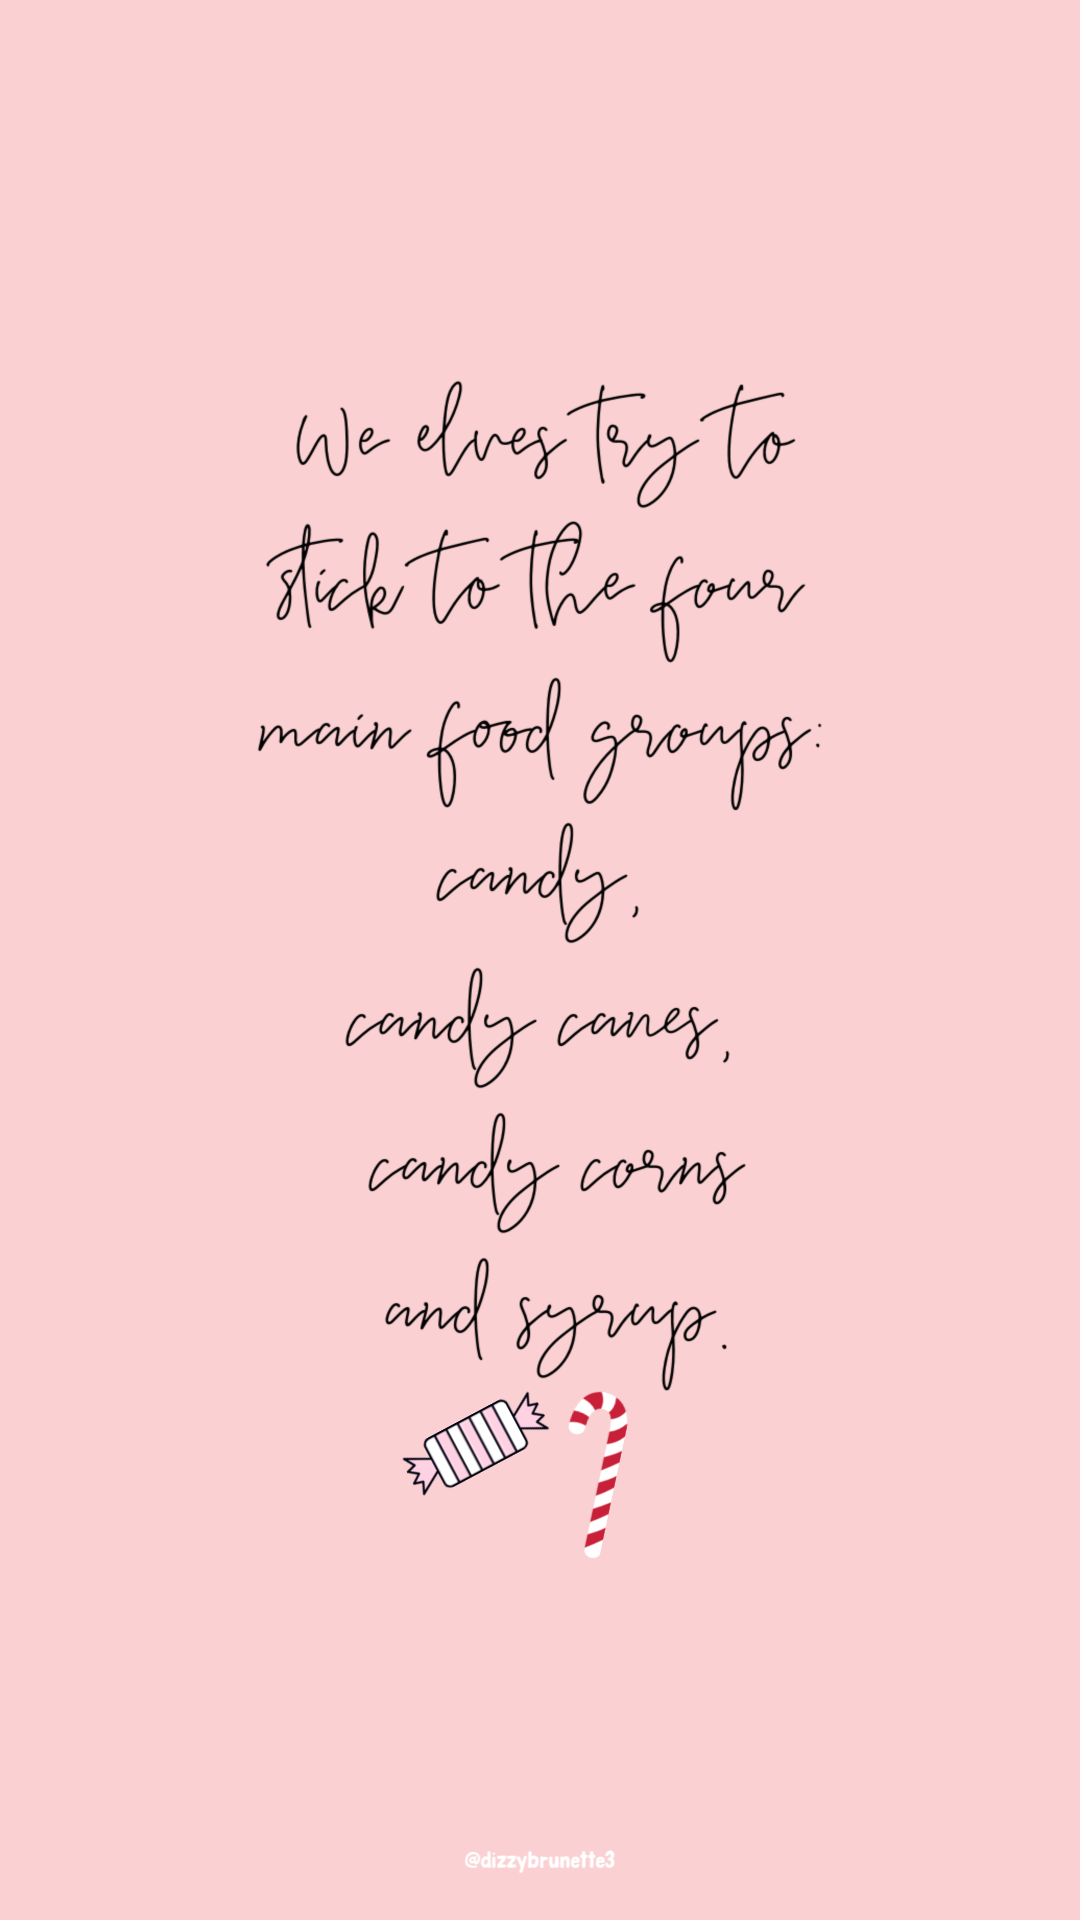 We elves try to
stick to the four
main food groups:
candy,
candy canes,
candy corns
and syrup.
@dizzybrunette3